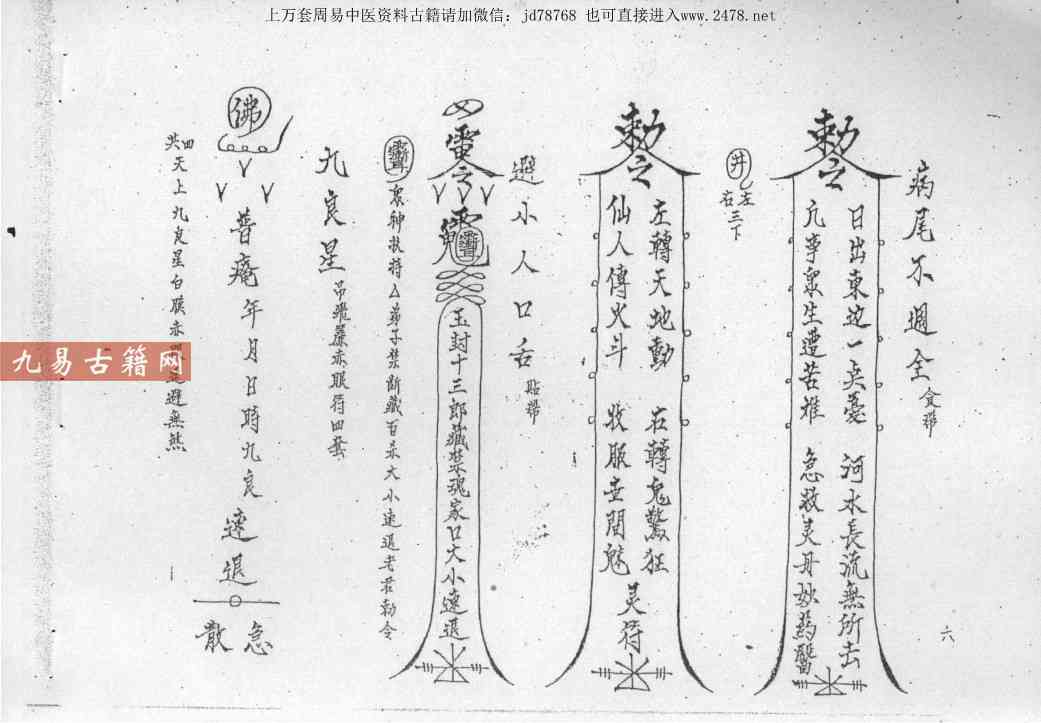 上万套周易中医资料古籍请加微信：jd78768 也可直接进入www.2478.net
病尾不週全 食帶
敕令
日出東边一点憂 河水長流無所去
凡事衆生遭苦难 急救灵丹妙药醫
井 左右三下
敕令
左轉天地動 右轉鬼驚狂
仙人傳火斗 收服世間魅
灵符
避小人口舌 貼帶
玉封十三郎藏禁魂家口大小速退
衆神扶持厶弟子禁断藏百杀大小速退老君勅令
九良星
符四套
佛
普庵年月日時九良速退
急散
四
共天上九良星白
避無煞
九易古籍网
六